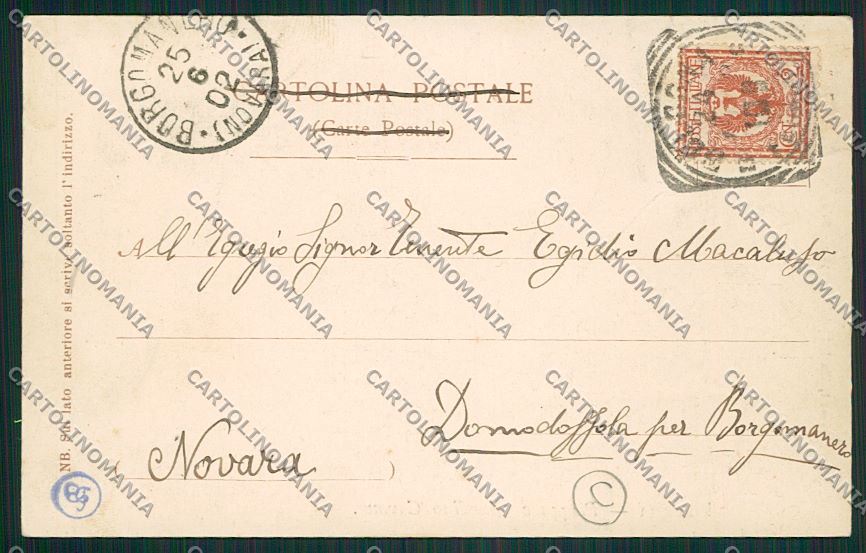 BORGOMANERO (NOVARA)
25
6
02
CARTOLINA POSTALE
(Carte Postale)
All' Egregio Signor Tenente Egidio Macaluso
Domodossola per Borgomanero
(Novara)
NB. Sul lato anteriore si scrive soltanto l'indirizzo.
C
CARTOLINOMANIA